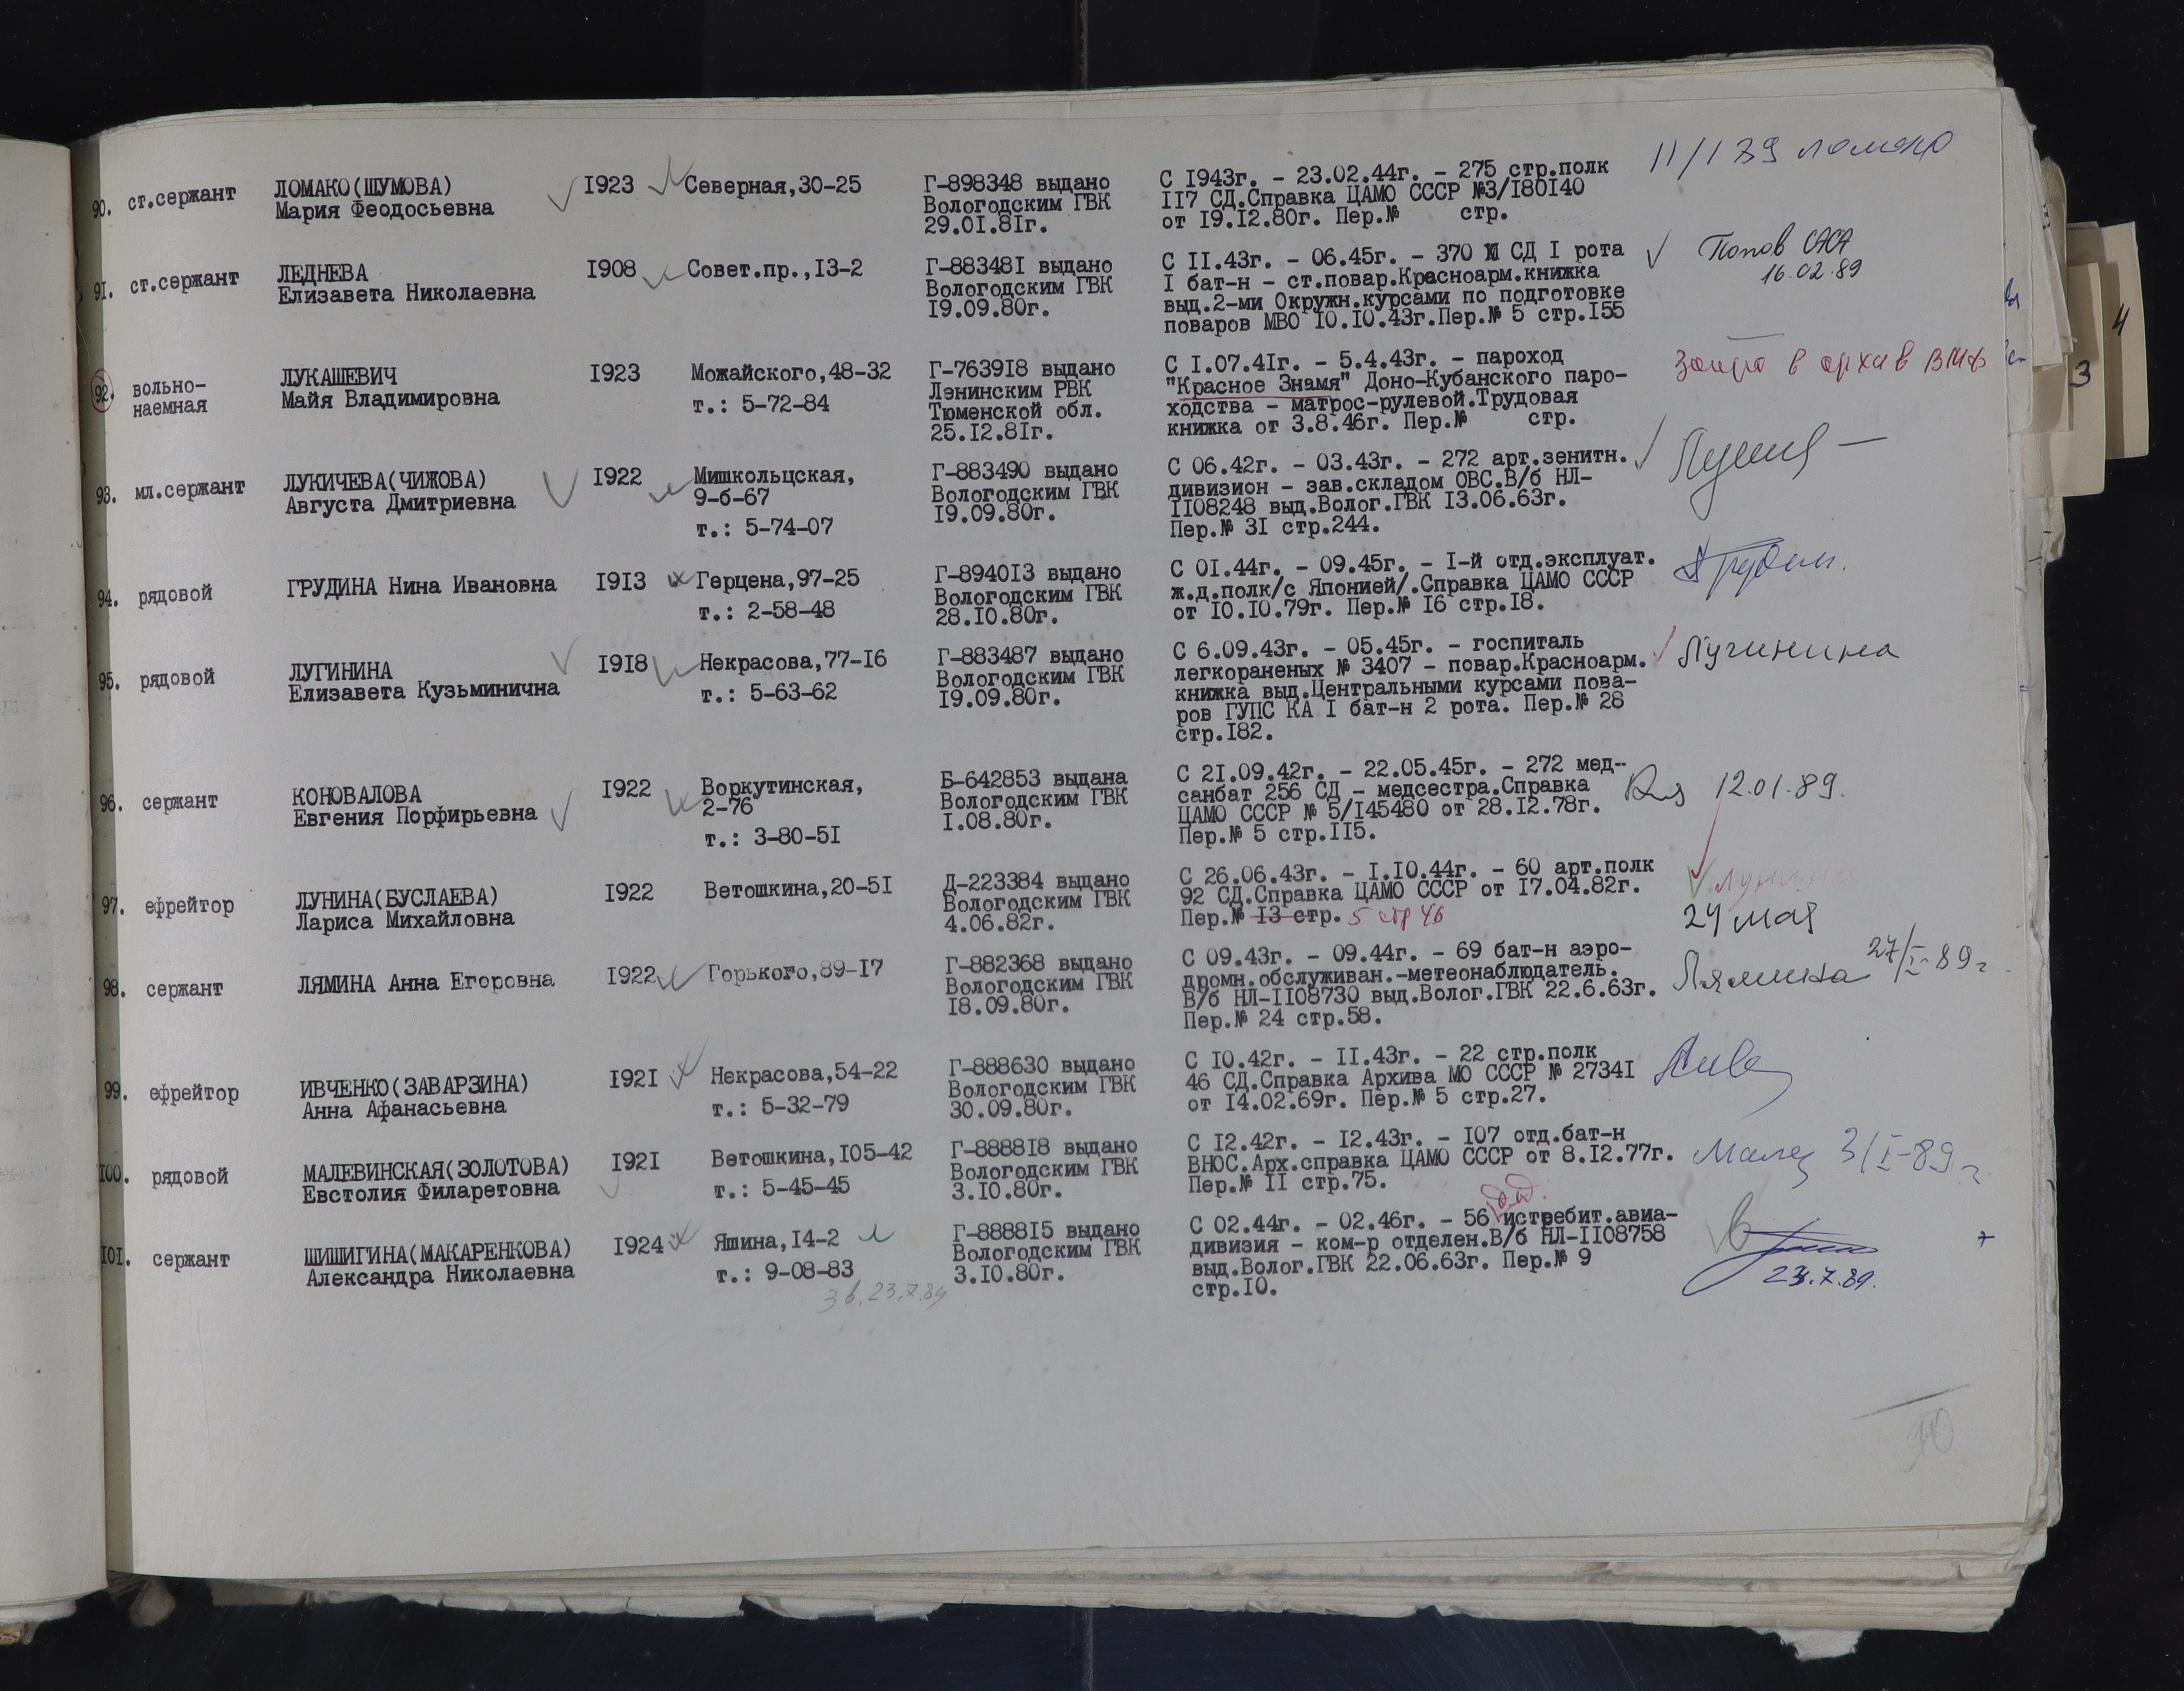 90. ст.сержант ЛОМАКО(ШУМОВА) I923 Северная,30-25 Г-898348 выдано С I943г. - 23.02.44г. - 275 стр.полк 11/1 89 Ломако
Мария Феодосьевна Вологодским ГВК II7 СД.Справка ЦАМО СССР №3/I80I40
29.0I.8Iг. от I9.I2.80г. Пер.№ стр.
9I. ст.сержант ЛЕДНЕВА I908 Совет.пр.,I3-2 Г-88348I выдано С II.43г. - 06.45г. - 370 СД I рота Попов
Елизавета Николаевна Вологодским ГВК I бат-н - ст.повар.Красноарм.книжка 16.02.89
I9.09.80г. выд.2-ми Окружн.курсами по подготовке
поваров МВО I0.I0.43г.Пер.№ 5 стр.I55
92. вольно- ЛУКАШЕВИЧ I923 Можайского,48-32 Г-7639I8 выдано С I.07.4Iг. - 5.4.43г. - пароход в архив ВМФ
наемная Майя Владимировна т.: 5-72-84 Лэнинским РВК "Красное Знамя" Доно-Кубанского паро-
Тюменской обл. ходства - матрос-рулевой.Трудовая
25.I2.8Iг. книжка от 3.8.46г. Пер.№ стр.
93. мл.сержант ЛУКИЧЕВА(ЧИЖОВА) I922 Мишкольцская, Г-883490 выдано С 06.42г. - 03.43г. - 272 арт.зенитн.
Августа Дмитриевна 9-б-67 Вологодским ГВК дивизион - зав.складом ОВС.В/б НЛ-
т.: 5-74-07 I9.09.80г. II08248 выд.Волог.ГВК I3.06.63г.
Пер.№ 3I стр.244.
94. рядовой ГРУДИНА Нина Ивановна I9I3 Герцена,97-25 Г-8940I3 выдано С 0I.44г. - 09.45г. - I-й отд.эксплуат.
т.: 2-58-48 Вологодским ГВК ж.д.полк/с Японией/.Справка ЦАМО СССР
28.I0.80г. от I0.I0.79г. Пер.№ I6 стр.I8.
95. рядовой ЛУГИНИНА I9I8 Некрасова,77-I6 Г-883487 выдано С 6.09.43г. - 05.45г. - госпиталь Лугинина
Елизавета Кузьминична т.: 5-63-62 Вологодским ГВК легкораненых № 3407 - повар.Красноарм.
I9.09.80г. книжка выд.Центральными курсами пова-
ров ГУПС КА I бат-н 2 рота. Пер.№ 28
стр.I82.
96. сержант КОНОВАЛОВА I922 Воркутинская, Б-642853 выдана С 2I.09.42г. - 22.05.45г. - 272 мед- 12.01.89.
Евгения Порфирьевна 2-76 Вологодским ГВК санбат 256 СД - медсестра.Справка
т.: 3-80-5I I.08.80г. ЦАМО СССР № 5/I45480 от 28.I2.78г.
Пер.№ 5 стр.II5.
97. ефрейтор ЛУНИНА(БУСЛАЕВА) I922 Ветошкина,20-5I Д-223384 выдано С 26.06.43г. - I.I0.44г. - 60 арт.полк Лунина
Лариса Михайловна Вологодским ГВК 92 СД.Справка ЦАМО СССР от I7.04.82г.
4.06.82г. Пер.№ I3 стр. 5 стр 46 24 мая
98. сержант ЛЯМИНА Анна Егоровна I922 Горького,89-I7 Г-882368 выдано С 09.43г. - 09.44г. - 69 бат-н аэро- Лямина 27/I-89г
Вологодским ГВК дромн.обслуживан.-метеонаблюдатель.
I8.09.80г. В/б НЛ-II08730 выд.Волог.ГВК 22.6.63г.
Пер.№ 24 стр.58.
99. ефрейтор ИВЧЕНКО(ЗАВАРЗИНА) I92I Некрасова,54-22 Г-888630 выдано С I0.42г. - II.43г. - 22 стр.полк
Анна Афанасьевна т.: 5-32-79 Вологодским ГВК 46 СД.Справка Архива МО СССР № 2734I
30.09.80г. от I4.02.69г. Пер.№ 5 стр.27.
I00. рядовой МАЛЕВИНСКАЯ(ЗОЛОТОВА) I92I Ветошкина,I05-42 Г-8888I8 выдано С I2.42г. - I2.43г. - I07 отд.бат-н Малев 3/I-89г
Евстолия Филаретовна т.: 5-45-45 Вологодским ГВК ВНОС.Арх.справка ЦАМО СССР от 8.I2.77г.
3.I0.80г. Пер.№ II стр.75.
I0I. сержант ШИШИГИНА(МАКАРЕНКОВА) I924 Яшина,I4-2 Г-8888I5 выдано С 02.44г. - 02.46г. - 56 истребит.авиа-
Александра Николаевна т.: 9-08-83 Вологодским ГВК дивизия - ком-р отделен.В/б НЛ-II08758
3.I0.80г. выд.Волог.ГВК 22.06.63г. Пер.№ 9 23.7.89.
23.7.89 стр.I0.
3
4